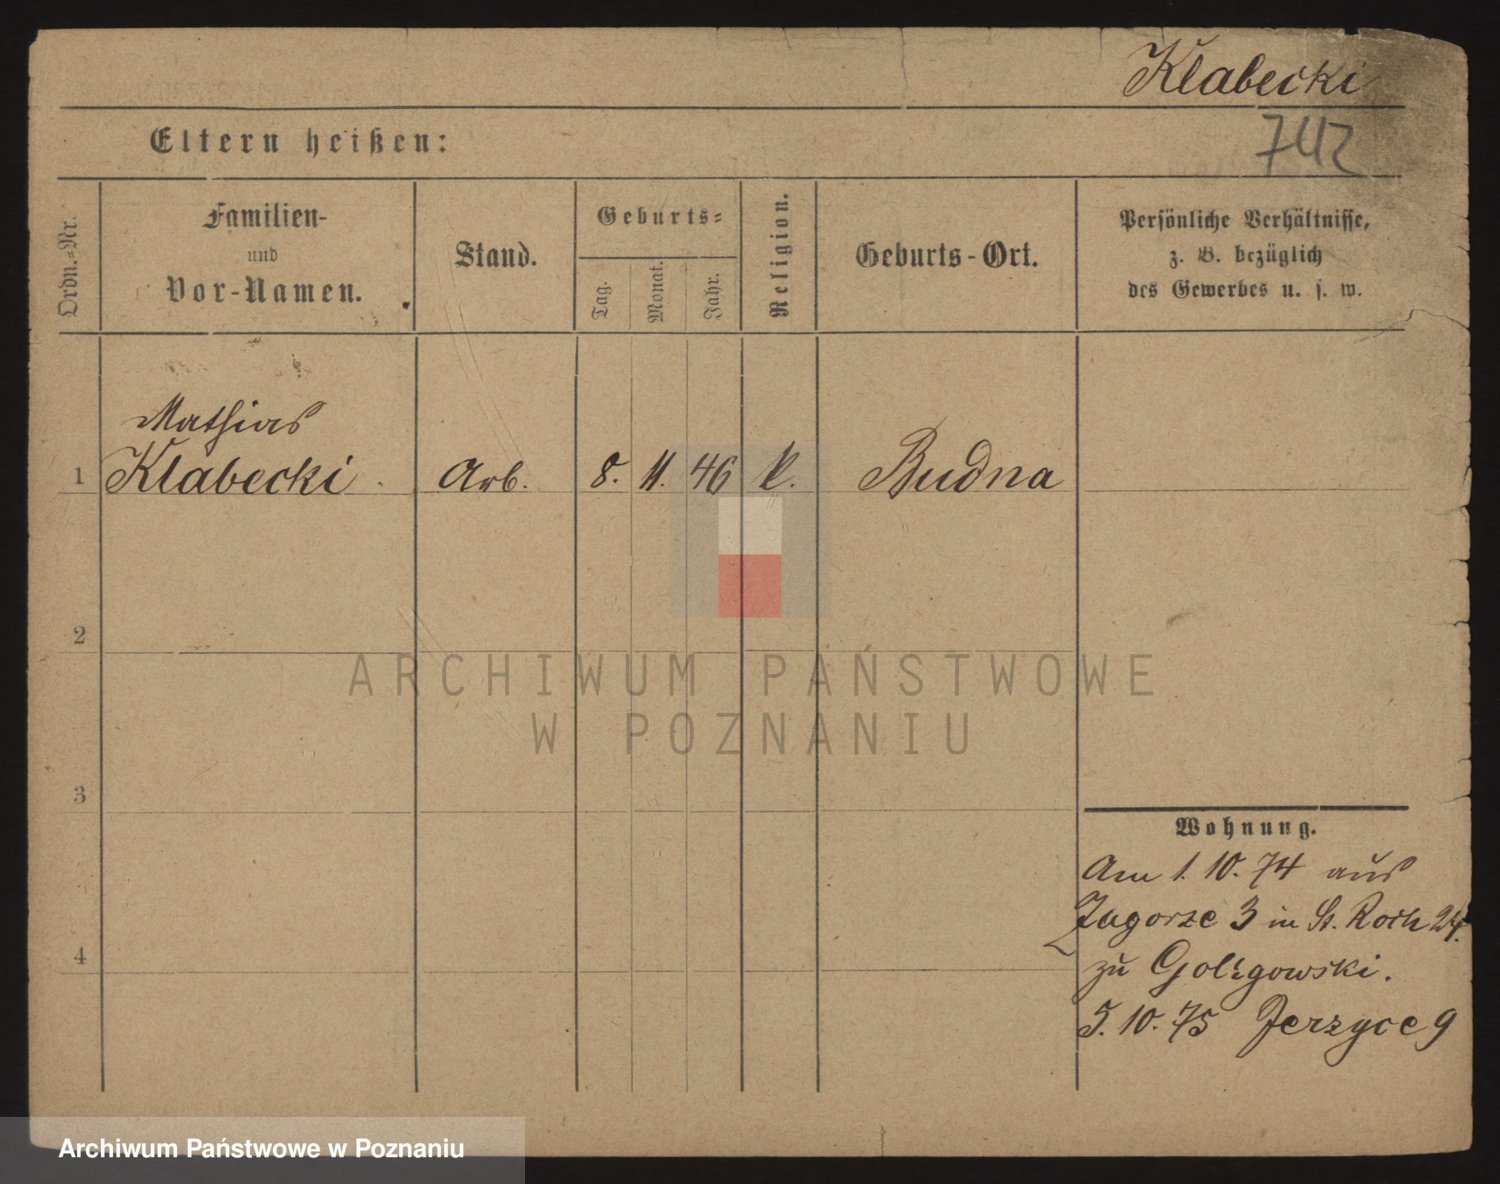 Klabecki
Eltern heißen:
742
Ordn.=Nr.
Familien-
und
Vor-Namen.
Stand.
Geburts=
Tag.
Monat.
Jahr.
Religion.
Geburts-Ort.
Persönliche Verhältnisse,
z. B. bezüglich
des Gewerbes u. s. w.
Mathias
1 Klabecki Arb. 8. 11. 46 k. Budna
2
ARCHIWUM PAŃSTWOWE
W POZNANIU
3
Wohnung.
Am 1. 10. 74 aus
Zagorze 3 in St. Roch 24.
4
zu Goligowski.
5. 10. 75 Jerzyce 9
Archiwum Państwowe w Poznaniu